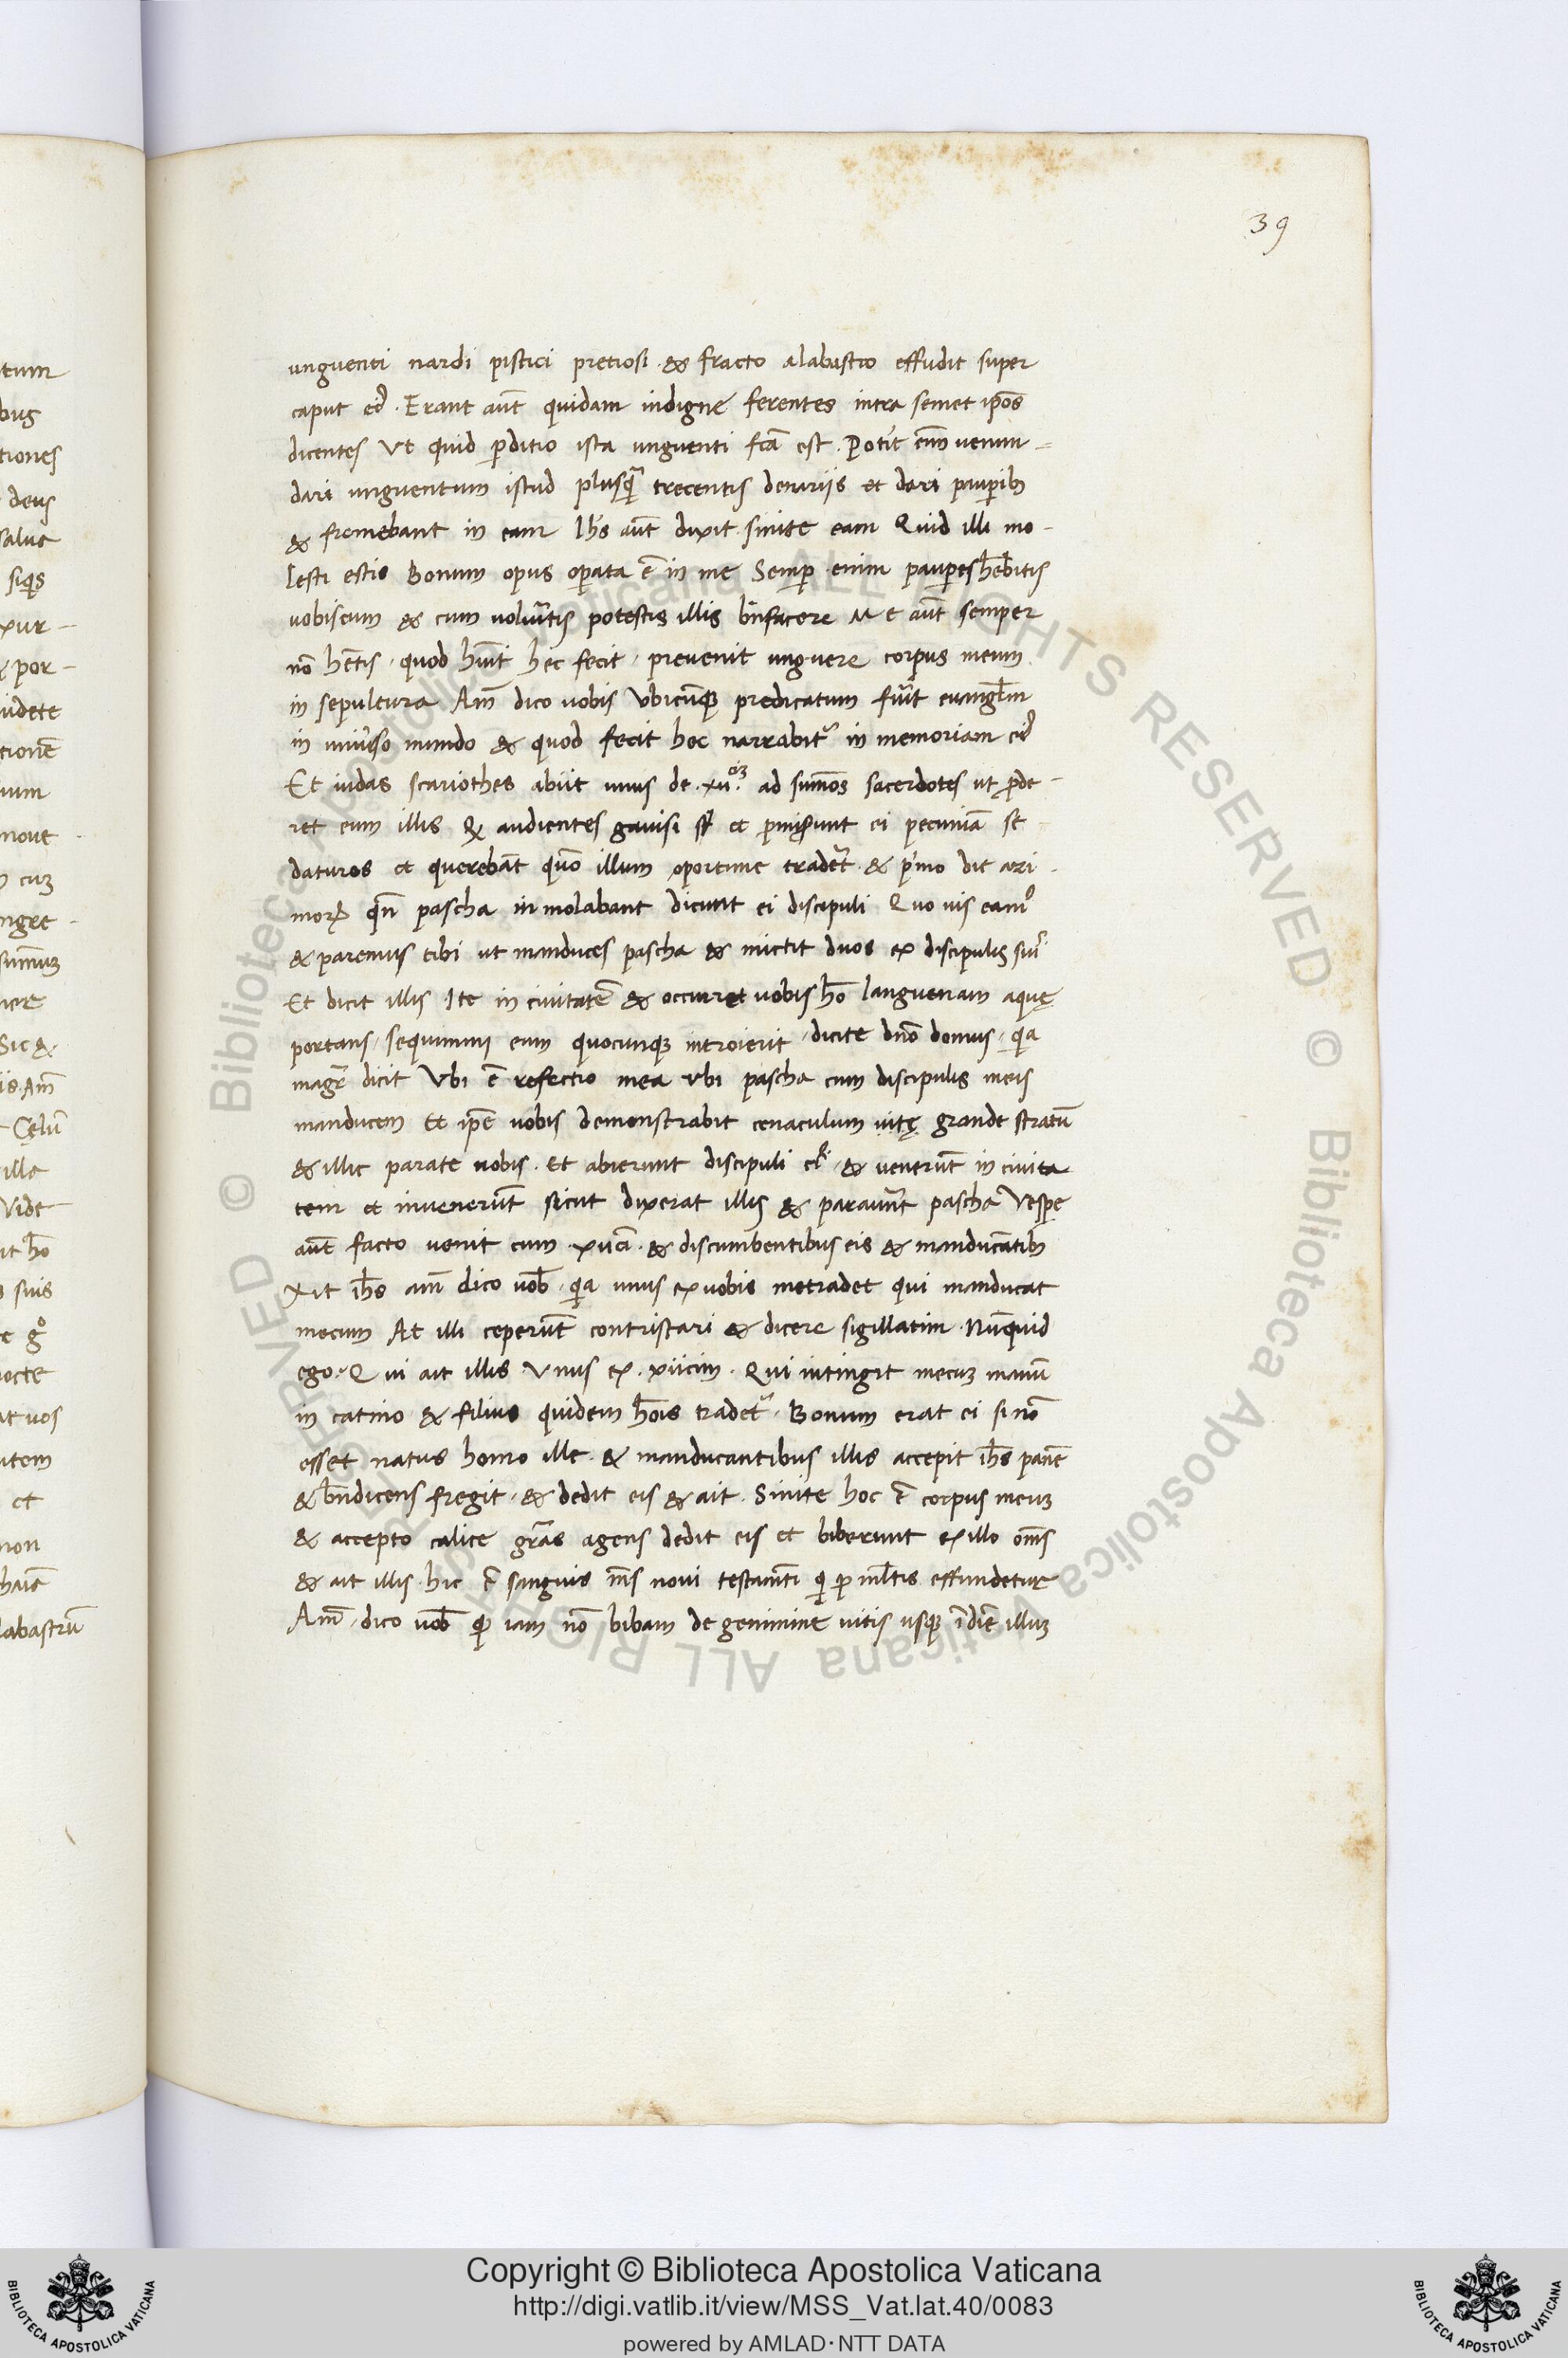 39
unguenti nardi pistici pretiosi · & fracto alabastro effudit super
caput eiꝰ · Erant aūt quidam indigne ferentes intra semet ip̄os
dicentes Ut quid ꝑditio ista unguenti fc̄a est · Potit̓ eīm venun-
dari unguentum istud plusq̄ꝫ trecentis denariis et dari pauꝑib
& fremebant in eam Ih̄s aūt dixit sinite eam Quid illi mo-
lesti estis Bonum opus oꝑata ē in me Semꝑ enim pauꝑes hēbitis
vobiscum & cum volu̓itis potestis illis bn̄facere Me aūt semper
nō hētis · quod hūit hec fecit · prevenit unguere corpus meum
in sepultura Am̄ dico vobis Ubicūqꝫ predicatum fu̓it evangl̄m
in univ̓so mundo & quod fecit hec narrabit᷑ in memoriam eiꝰ
Et iudas scariothes abiit unus de · xii · ad sum̄os sacerdotes ut ꝓde-
ret eum illis Q̲ audientes gavisi st̄ et ꝓmiserunt ei pecuniā se
daturos et querebāt quō illum oportune trader̄t · & p̓mo die azi-
moꝝ qn̄ pascha inmolabant dicunt ei discipuli Quo vis eamꝰ
& paremus tibi ut manduces pascha & mictit duos ex discipulis sui᷑
Et dicit illis Ite in civitatē & occurret vobis hō languenam aquę
portans · sequimini eum quocunqꝫ introierit · dicite dn̄o domus · qꝛa
magr̄ dicit Ubi ē refectio mea ubi pascha cum discipulis meis
manducem Et ip̄e vobis demonstrabit cenaculum vitę grande stratū
& illic parate nobis · Et abierunt discipuli eiꝰ · & venerūt in civita
tem et invenerūt sicut dixerat illis & paraver̄t pascha Vesꝑe
aūt facto venit cum · xiici · & discumbentibus eis & manducātib
Xit ih̄s am̄ dico vob̄ · qꝛa unus ex vobis metradet qui manducat
mecum At illi ceperūt contristari & dicere sigillatim · Nūquid
ego · Qui ait illis Unus ex · xiicim · Qui intingit mecuꝫ manū
in catino & filius quidem hōis tradet᷑ · Bonum erat ei si nō
esset natus homo ille · & manducantibus illis accepit ih̄s panē
& bn̄dicens fregit · & dedit eis & ait · Sinite hoc ē corpus meuꝫ
& accepto calice gr̄as agens dedit eis et biberunt ex illo om̄s
& ait illis · hic ē sanguis m̄s novi testam̄ti qi ꝑ ml̄tis effundetur
Am̄ · dico vob̄ qꝛ iam nō bibam de genimine vitis usqꝫ ī diē illuꝫ
Copyright © Biblioteca Apostolica Vaticana
http://digi.vatlib.it/view/MSS_Vat.lat.40/0083
powered by AMLAD·NTT DATA
BIBLIOTECA APOSTOLICA VATICANA
BIBLIOTECA APOSTOLICA VATICANA
© Biblioteca Apostolica Vaticana ALL RIGHTS RESERVED © Biblioteca Apostolica Vaticana ALL RIGHTS RESERVED